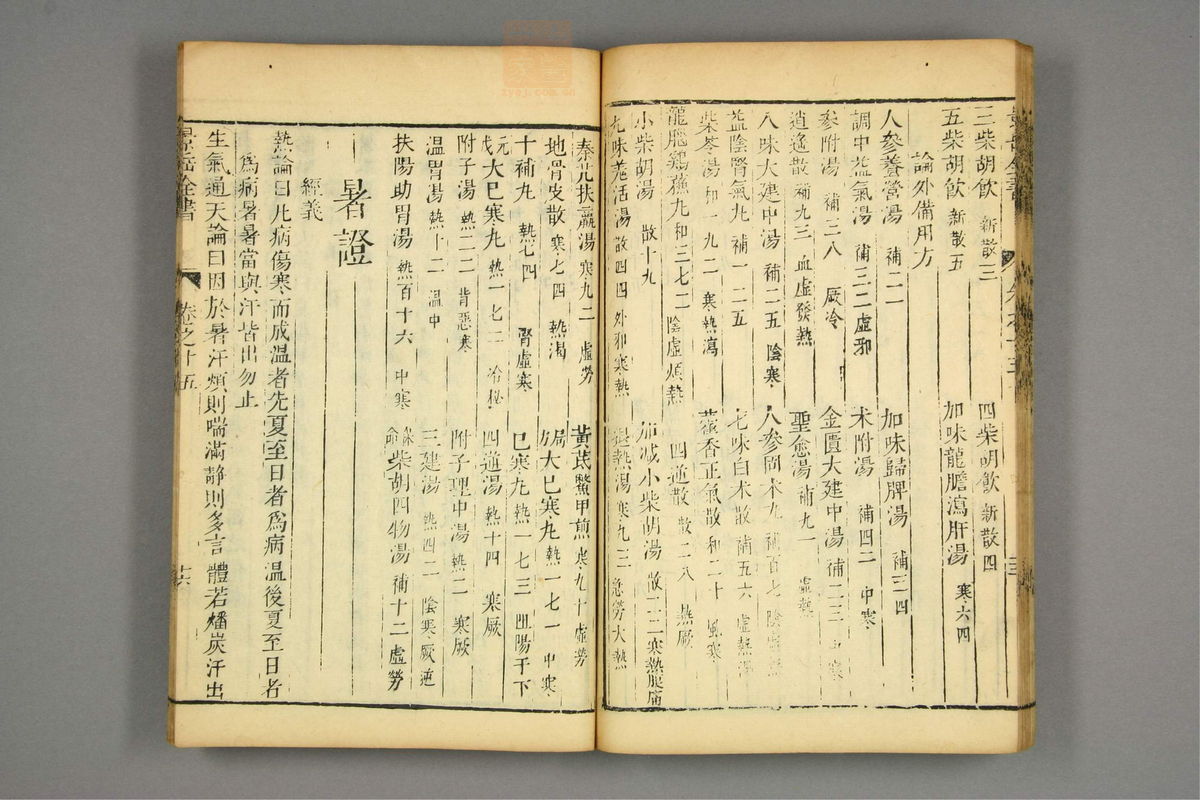 三柴胡飲 新散三 四柴胡飲 新散四
五柴胡飲 新散五 加味龍膽瀉肝湯 寒六四
論外備用方
人參養營湯 補二一 加味歸脾湯 補三四
調中益氣湯 補三二 虛邪 术附湯 補四二 中寒
參附湯 補三八 厥冷 金匱大建中湯 補二三 中寒
逍遙散 補九三 血虛發熱 聖愈湯 補九一 虛熱
八味大建中湯 補二五 陰寒 人參固本丸 補百七 陰虛
益陰腎氣丸 補一二五 七味白术散 補五六 虛熱
柴苓湯 和一九二 寒熱瀉 藿香正氣散 和二十 風寒
龍腦雞蘇丸 和三七二 陰虛煩熱 四逆散 散二八 熱厥
小柴胡湯 散十九 加减小柴胡湯 散二二 寒熱腹痛
九味羌活湯 散四四 外邪寒熱 退熱湯 寒九三 急勞大熱
秦艽扶羸湯 寒九二 虛勞 黃芪鱉甲煎 寒九十 虛勞
地骨皮散 寒七四 熱渴 局方大已寒丸 熱一七一 中寒
十補丸 熱七四 腎虛寒 已寒丸 熱一七三 阻陽于下
元戎大已寒丸 熱一七二 冷秘 四逆湯 熱十四 寒厥
附子湯 熱二二 背惡寒 附子理中湯 熱二 寒厥
溫胃湯 熱十二 溫中 三建湯 熱四二 陰寒厥逆
扶陽助胃湯 熱百十六 中寒 保命柴胡四物湯 補十二 虛勞
暑證
經義
熱論曰凡病傷寒而成溫者先夏至日者爲病溫後夏至日者
爲病暑暑當與汗皆出勿止
生氣通天論曰因於暑汗煩則喘滿靜則多言體若燔炭汗出
景岳全書 卷之十五 十六